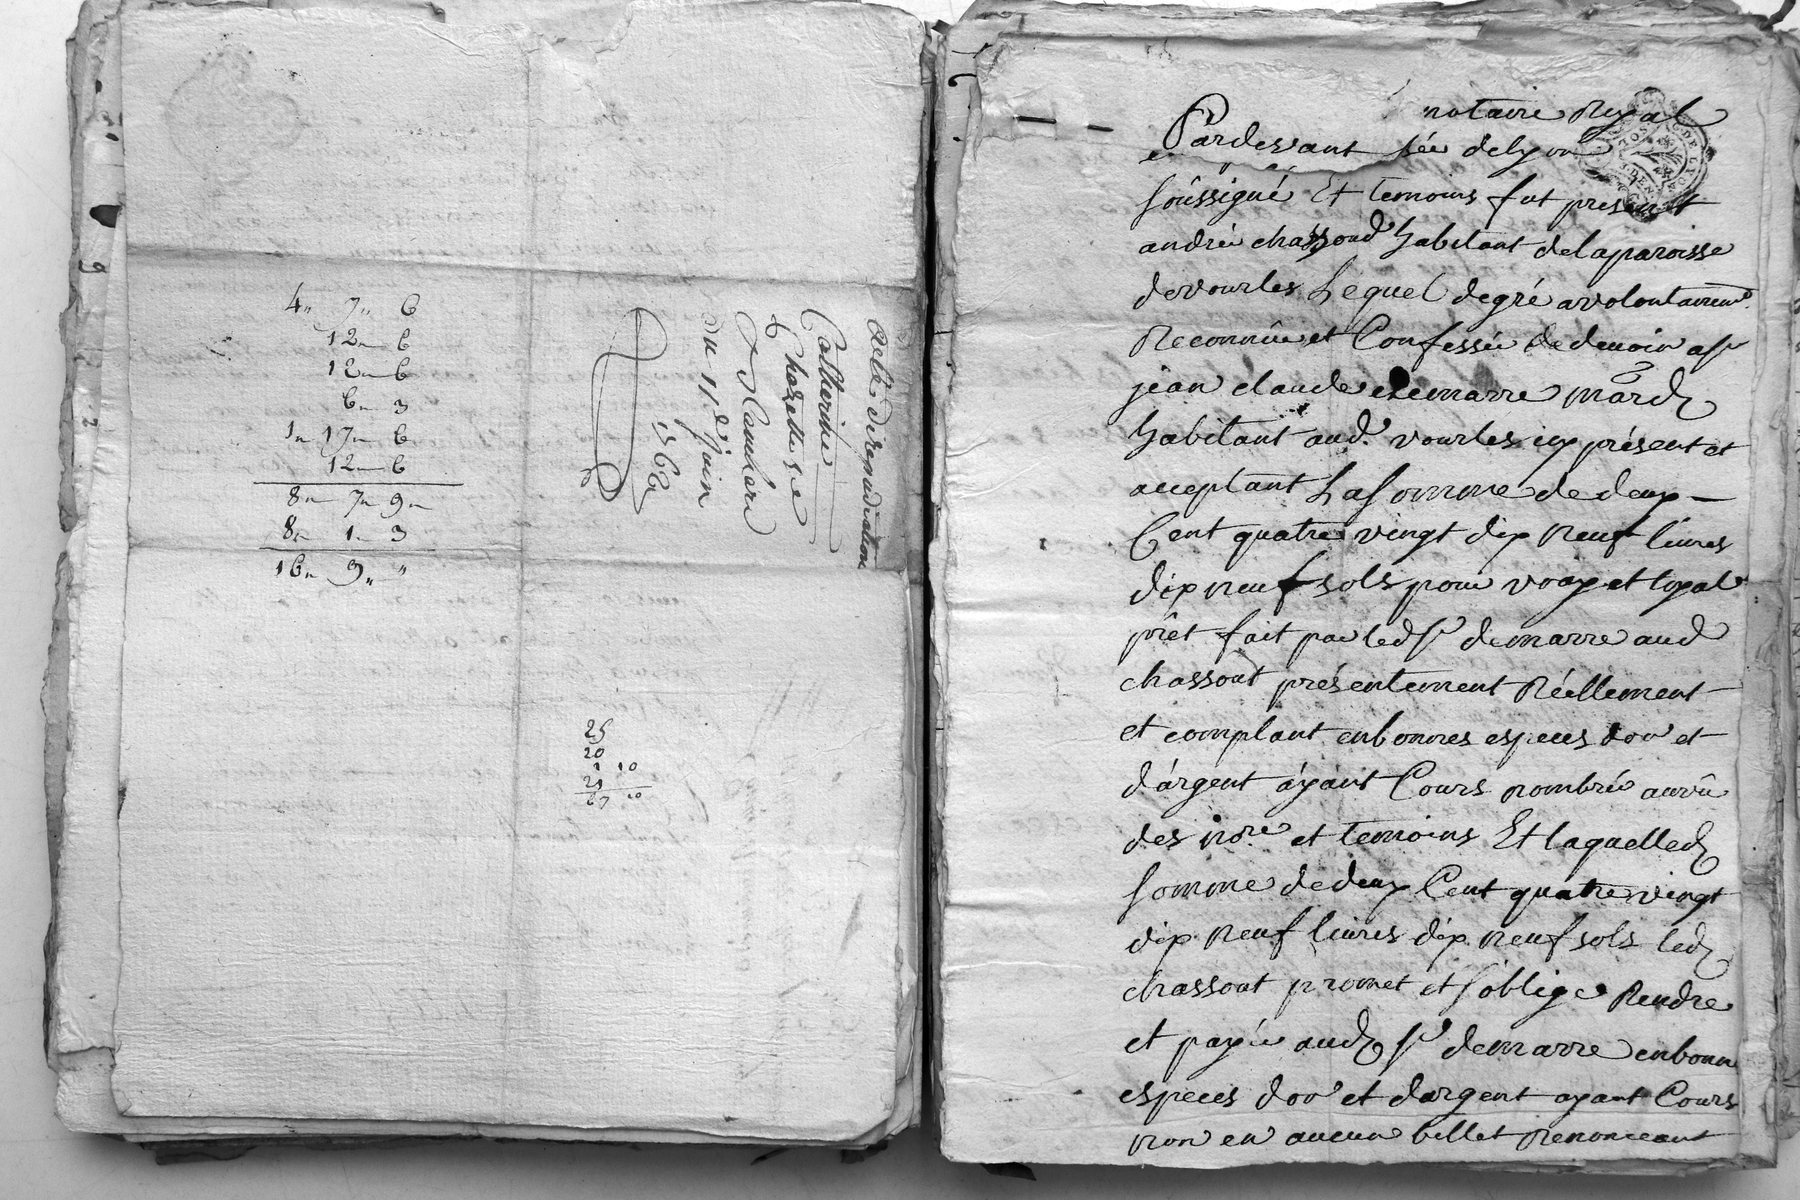 4 7 6
12 6
12 6
6 3
1 17 6
12 6
8 7 9
8 1 3
16 9 "
acte de repudiation
Catherine
25
20
1 10
21
67 10
notaire Royal
Pardevant de lyon
soûssigné Et temoins fut present
andré chassond habitant de la paroisse
de vourles Lequel de gré a volontairemt
Reconnû et Confessée de devoir a sr
jean claude demarre march
habitant aud. vourles icy présent et
acceptant La somme de deux
Cent quatre vingt dix neuf livres
dix neuf sols pour vray et loyal
prêt fait par led sr demarre aud
chassont présentement Réellement
et comptant en bonnes especes dor et
d'argent ayant Cours nombré au vû
des nore et temoins Et laquelle d
somme de deux Cent quatre vingt
dix neuf livres dix neuf sols led
chassont promet et s'oblige Rendre
et payée aud sr demarre en bonn
especes dor et d'argent ayant Cours
non en aucun billet Renonceant